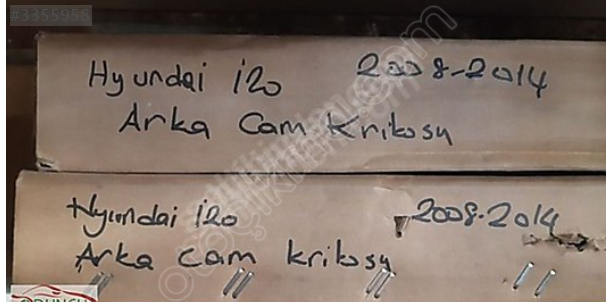 #3355958
Hyundai i20 2008-2014
Arka Cam Krikosu
Hyundai i20 2008-2014
Arka Cam krikosu